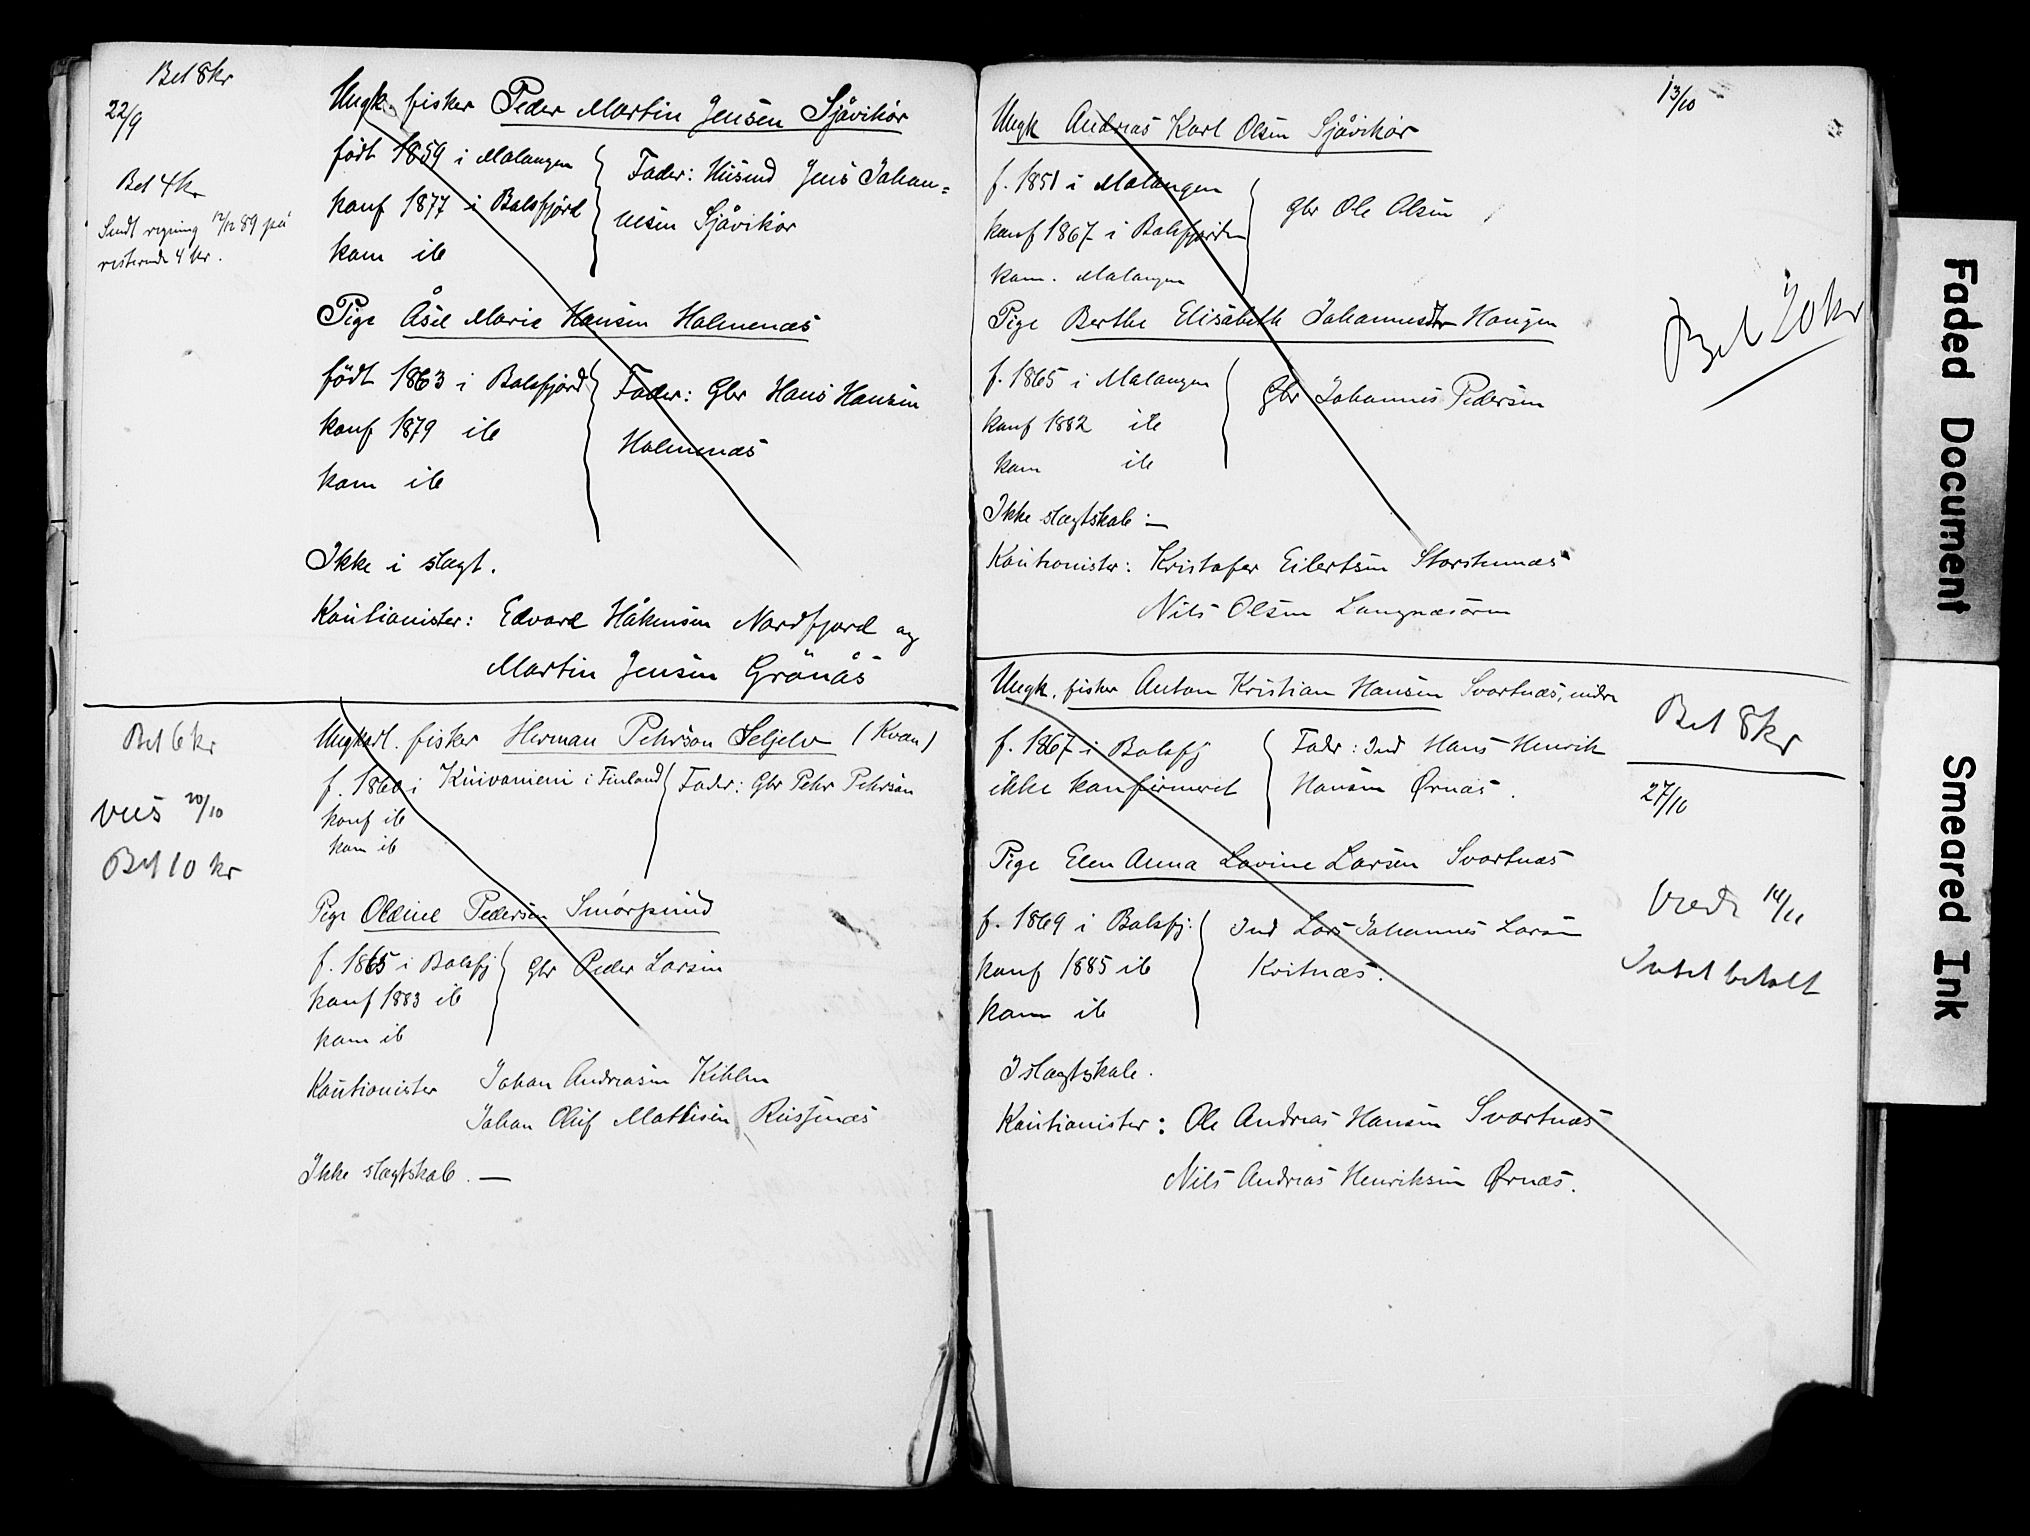 Bet 8 kr
22/9
Bet 4 kr
Sendt regning 12/12 89 på
resterende 4 kr.
Ungk. fisker Peder Martin Jensen Sjåvikør
født 1859 i Malangen
konf 1877 i Balsfjord
kom ib
Fader: Husmd Jens Johan=
nesen Sjåvikør
Pige Åsel Marie Hansen Holmenæs
født 1863 i Balsfjord
konf 1879 ib
kom ib
Fader: Gbr Hans Hansen
Holmenæs
Ikke i slægt.
Kautionister: Edvard Håkensen Nordfjord og
Martin Jensen Grönås
Bet 6 kr
viet 20/10
Bet 10 kr
Ungkarl. fisker Herman Pehrson Seljelv (Kvæn)
f. 1860 i Kuivaniemi i Finland
konf ib
kom ib
Fader: Gbr Pehr Pehrson
Pige Oldine Pedersen Smörpund
f. 1865 i Balsfj
konf 1883 ib
kom ib
Gbr Peder Larsen
Kautionister Johan Andreasen
Johan Oluf Mathisen Russenæs
Ikke slægtskab. —
13/10
Ungk Andreas Karl Olsen Sjåvikør
f. 1851 i Malangen
konf 1867 i Balsfjorden
kom. Malangen
Gbr Ole Olsen
Pige Berthe Elisabeth Johannesdtr Haugen
f. 1865 i Malangen
konf 1882 ib
kom ib
Gbr Johannes Pedersen
Bet 20 kr
Ikke slægtskab: —
Kautionister: Kristofer Eilertsen Storstennæs
Nils Olsen Langnæsören
Ungk. fisker Anton Kristian Hansen Svartnæs, indre
f. 1867 i Balsfj
ikke konfirmeret
Fader: Ind Hans Henrik
Hansen Ørnæs.
Bet 8 kr
27/10
Pige Elen Anna Lovine Larsen Svartnæs
f. 1869 i Balsfj.
konf 1885 ib
kom ib
Ind Lars Johannes Larsen
Kvitnæs.
Viede 14/11
Intet betalt
I slægtskab.
Kautionister: Ole Andreas Hansen Svartnæs
Nils Andreas Henriksen Ørnæs.
Faded Document
Smeared Ink